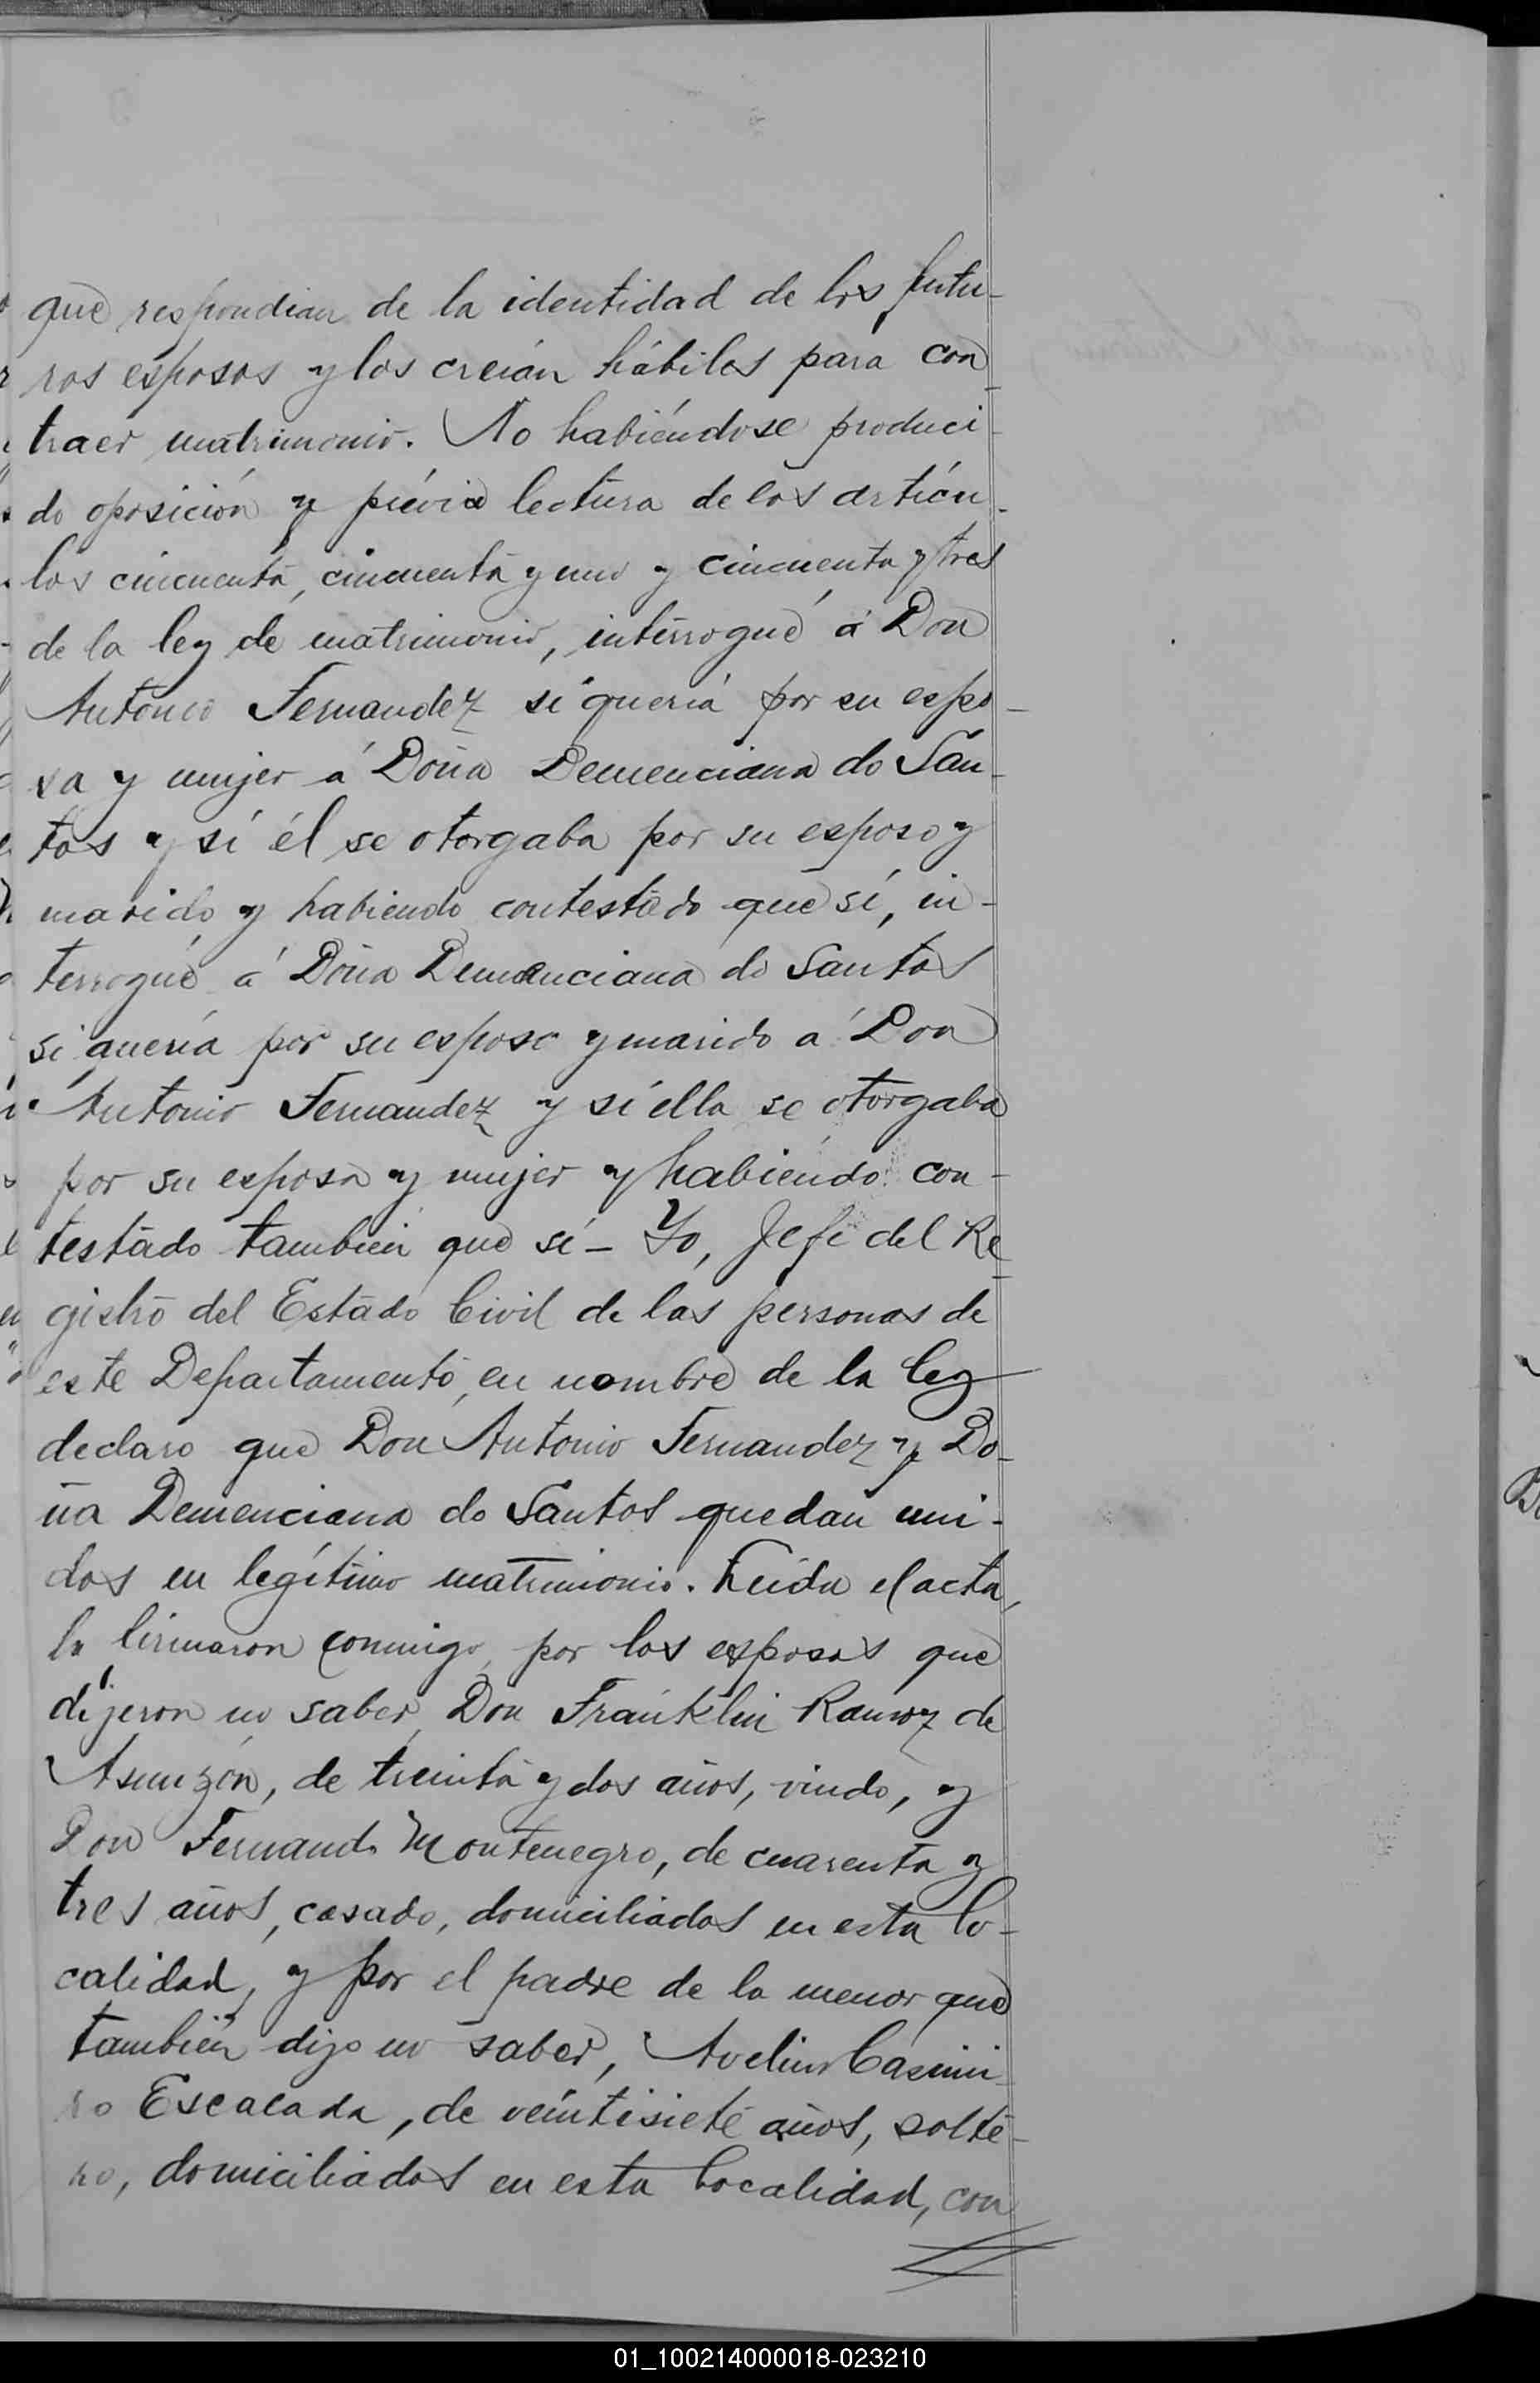 que respondian de la identidad de los futu-
ros esposos y los creían hábiles para con-
traer matrimonio. No habiéndose produci-
do oposición y prévia lectura de los artícu-
los cincuenta, cincuenta y uno y cincuenta y tres
de la ley de matrimonio, interrogué á Don
Antonio Fernandez si quería por su espo-
sa y mujer á Doña Demenciana do San-
tos y si él se otorgaba por su esposo y
marido, y habiendo contestado que sí, in-
terrogué á Doña Demenciana do Santos
si quería por su esposo y marido á Don
Antonio Fernandez y si ella se otorgaba
por su esposa y mujer y habiendo con-
testado también que sí — Yo, Jefe del Re-
gistro del Estado Civil de las personas de
este Departamento, en nombre de la ley
declaro que Don Antonio Fernandez y Do-
ña Demenciana do Santos quedan uni-
dos en legítimo matrimonio. Leida el acta,
la firmaron conmigo, por los esposos que
dijeron no saber, Don Franklin de
de treinta y dos años, viudo, y
Don Fernando Montenegro, de cuarenta y
tres años, casado, domiciliados en esta lo-
calidad, y por el padre de la menor que
también dijo no saber, Avelino Casimi-
ro Escalada, de veintisiete años, solte-
ro, domiciliados en esta localidad, con
01_100214000018-023210